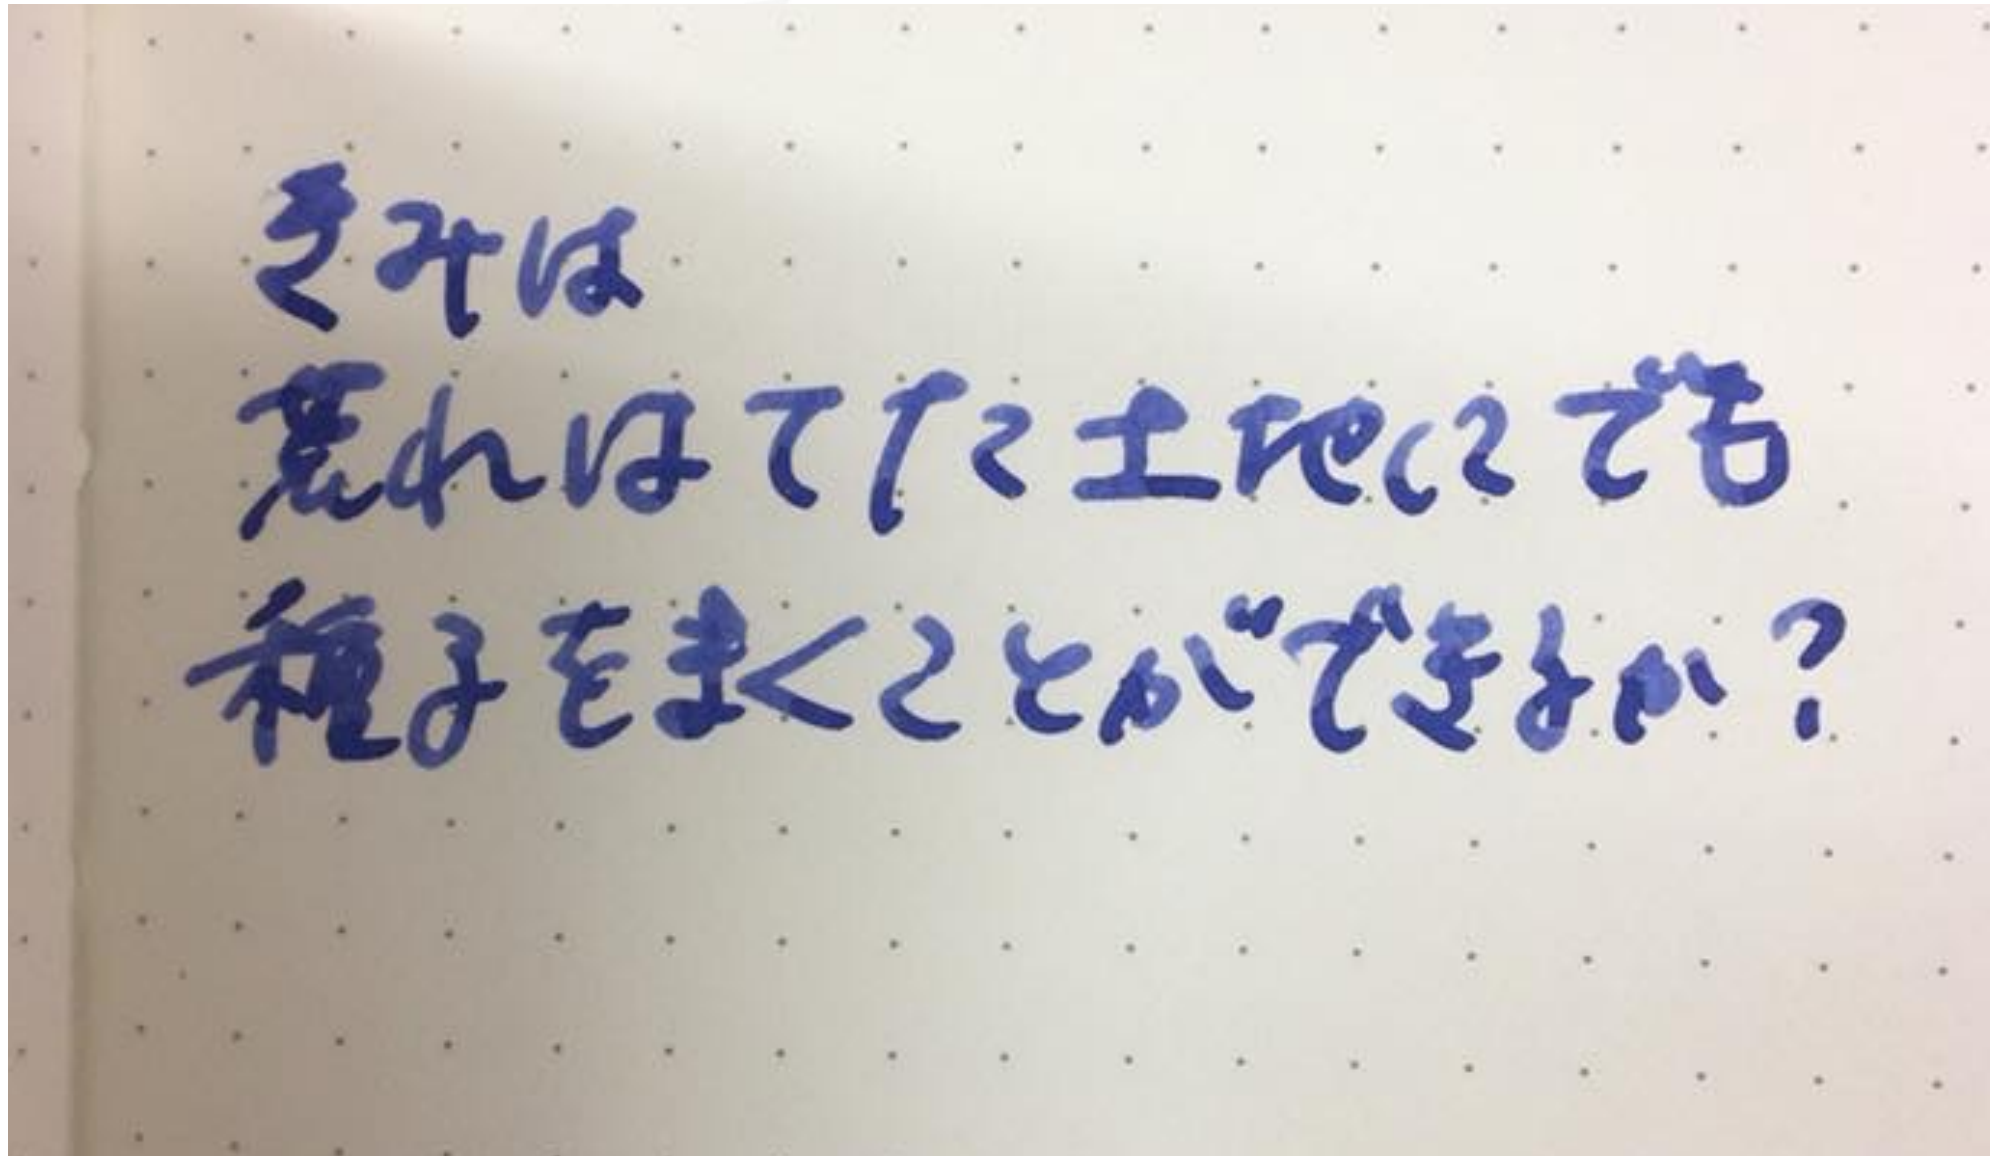 きみは
荒れはてた土地にでも
種子をまくことができるか？